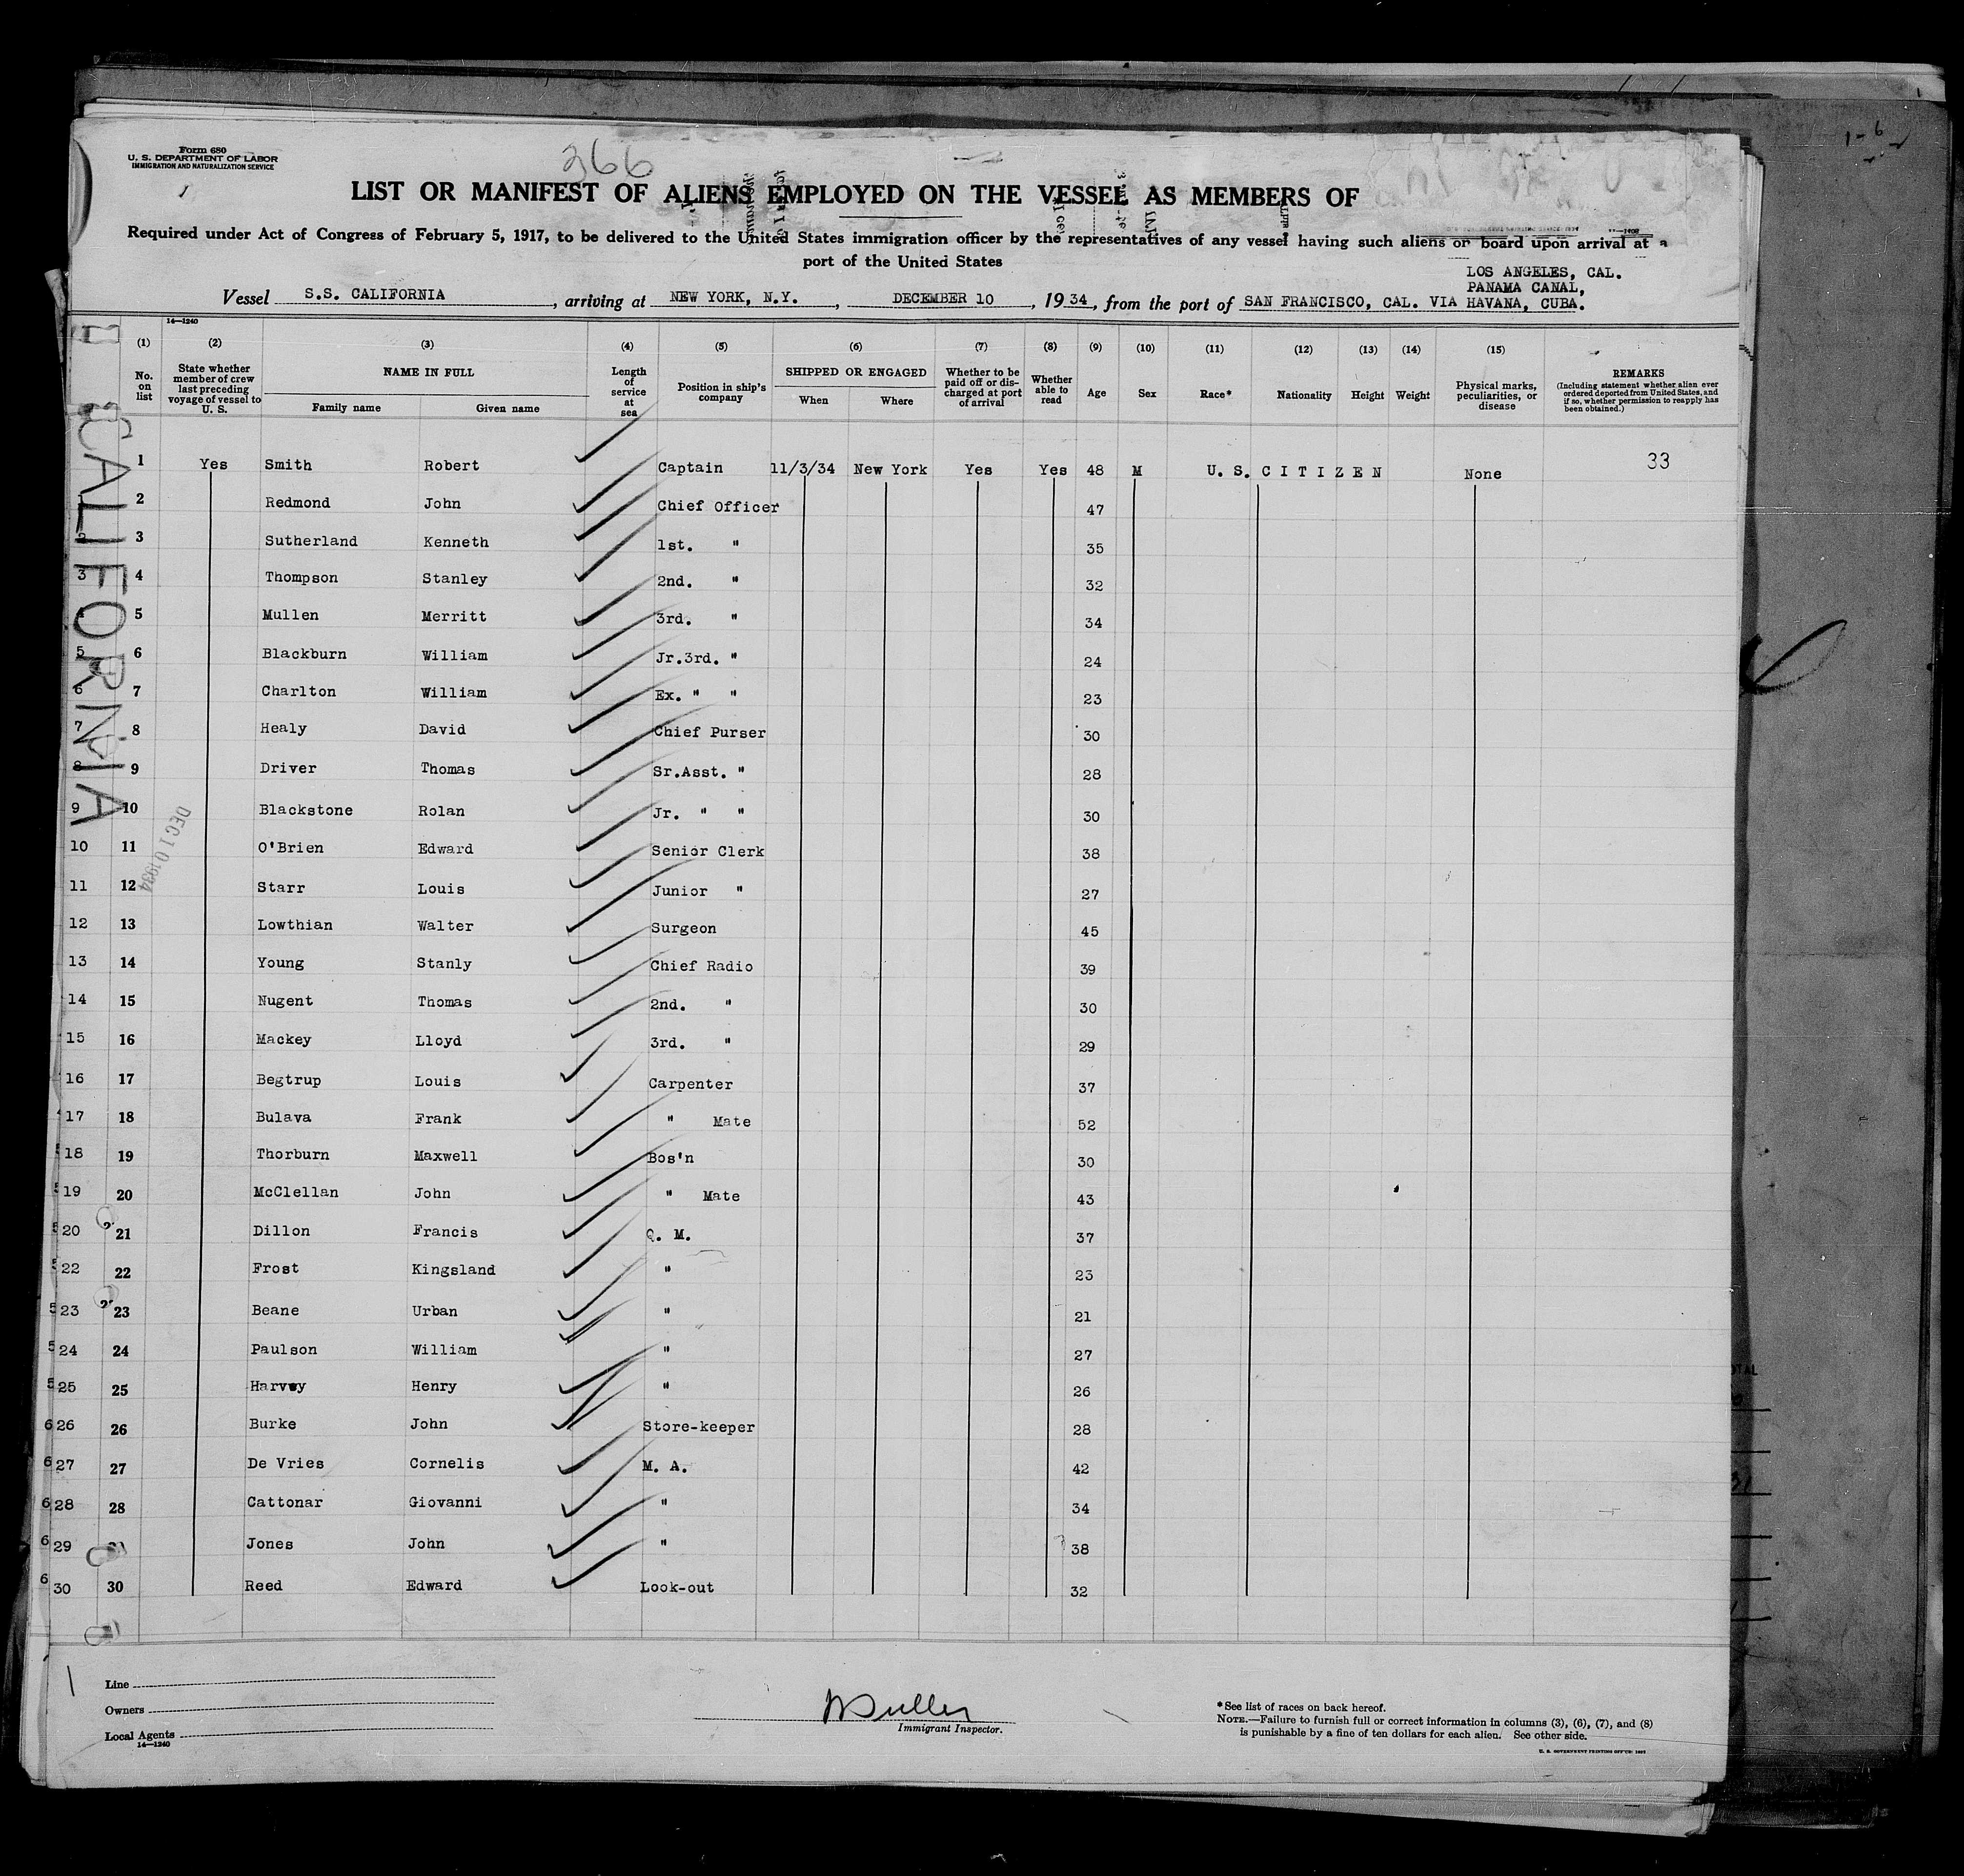 Form 680
U. S. DEPARTMENT OF LABOR
IMMIGRATION AND NATURALIZATION SERVICE
1
366
LIST OR MANIFEST OF ALIENS EMPLOYED ON THE VESSEL AS MEMBERS OF
Required under Act of Congress of February 5, 1917, to be delivered to the United States immigration officer by the representatives of any vessel having such aliens on board upon arrival at a
port of the United States
LOS ANGELES, CAL.
PANAMA CANAL,
Vessel S.S. CALIFORNIA, arriving at NEW YORK, N.Y., DECEMBER 10, 1934, from the port of SAN FRANCISCO, CAL. VIA HAVANA, CUBA.
14—1240
(1) (2) (3) (4) (5) (6) (7) (8) (9) (10) (11) (12) (13) (14) (15)
No. on list
State whether member of crew last preceding voyage of vessel to U. S.
NAME IN FULL
Family name
Given name
Length of service at sea
Position in ship's company
SHIPPED OR ENGAGED
When
Where
Whether to be paid off or discharged at port of arrival
Whether able to read
Age
Sex
Race*
Nationality
Height
Weight
Physical marks, peculiarities, or disease
REMARKS
(Including statement whether alien ever ordered deported from United States, and if so, whether permission to reapply has been obtained.)
CALIFORNIA
DEC 10 1934
33
1 Yes Smith Robert Captain 11/3/34 New York Yes Yes 48 M U. S. C I T I Z E N None
2 Redmond John Chief Officer 47
2 3 Sutherland Kenneth 1st. " 35
3 4 Thompson Stanley 2nd. " 32
4 5 Mullen Merritt 3rd. " 34
5 6 Blackburn William Jr.3rd. " 24
6 7 Charlton William Ex. " " 23
7 8 Healy David Chief Purser 30
8 9 Driver Thomas Sr.Asst. " 28
9 10 Blackstone Rolan Jr. " " 30
10 11 O'Brien Edward Senior Clerk 38
11 12 Starr Louis Junior " 27
12 13 Lowthian Walter Surgeon 45
13 14 Young Stanly Chief Radio 39
14 15 Nugent Thomas 2nd. " 30
15 16 Mackey Lloyd 3rd. " 29
16 17 Begtrup Louis Carpenter 37
17 18 Bulava Frank " Mate 52
18 19 Thorburn Maxwell Bos'n 30
19 20 McClellan John " Mate 43
20 21 Dillon Francis Q. M. 37
22 22 Frost Kingsland " 23
23 23 Beane Urban " 21
24 24 Paulson William " 27
25 25 Harvey Henry " 26
26 26 Burke John Store-keeper 28
27 27 De Vries Cornelis M. A. 42
28 28 Cattonar Giovanni " 34
29 Jones John " 38
30 30 Reed Edward Look-out 32
Line
Owners
Local Agents
14—1240
Immigrant Inspector.
*See list of races on back hereof.
NOTE.—Failure to furnish full or correct information in columns (3), (6), (7), and (8)
is punishable by a fine of ten dollars for each alien. See other side.